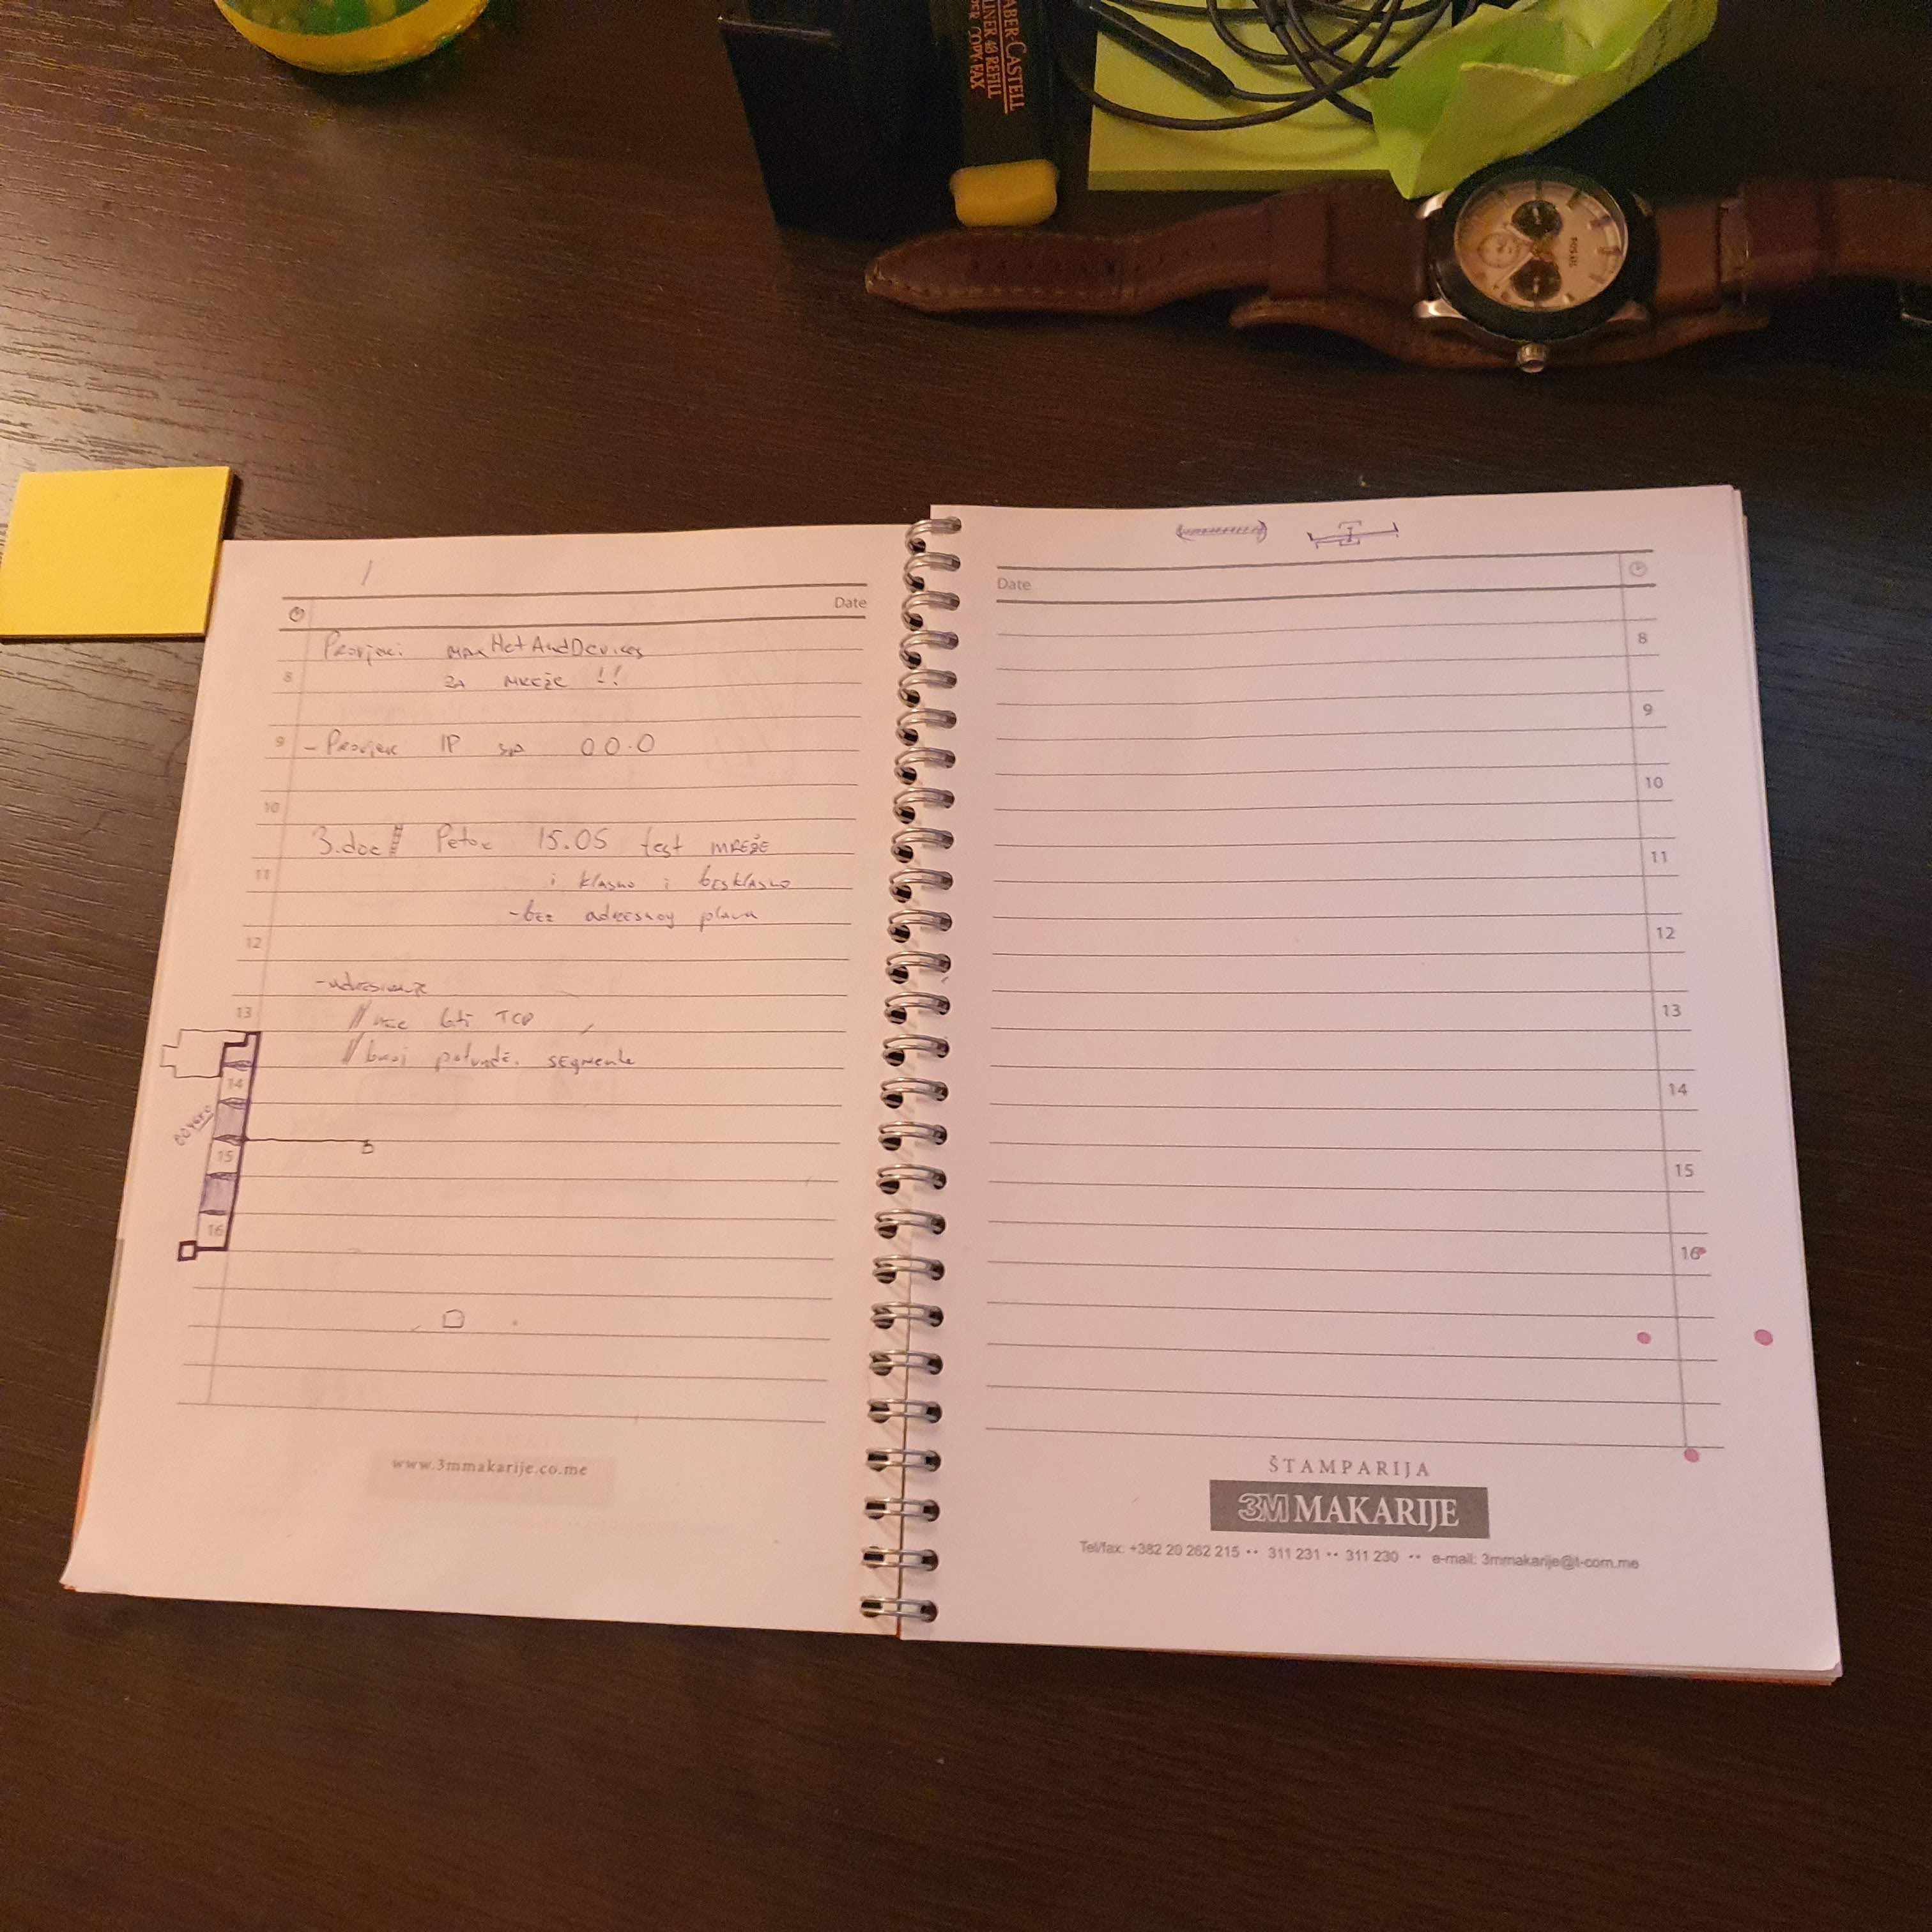 ABER-CASTELL
LINER 48 REFILL
COPY, FAX
FOSSIL
Date
Provjeri: maxNetAndDevices
8
za mreže !!
9
- Provjer IP sa 00.0
10
3.doc Petak 15.05 test mreže
11
i klasno i besklasno
- bez adresnog plana
12
- adresiranje
13
// biti TCP
// broj potvrde. segmenta
14
15
16
www.3mmakarije.co.me
Date
8
9
10
11
12
13
14
15
16
ŠTAMPARIJA
3M MAKARIJE
Tel/fax: +382 20 262 215 •• 311 231 •• 311 230 •• e-mail: 3mmakarije@t-com.me